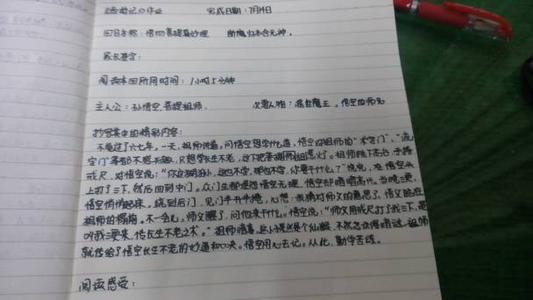 西游记 作业 完成日期：7月14日
回目名称：悟彻菩提真妙理 断魔归本合元神。
家长签字：
阅读本回所用时间：1小时5分钟
主人公：孙悟空、菩提祖师。 次要人物：混世魔王、悟空的师兄
抄写其中的精彩内容：
不觉过了六七年，一天，祖师讲道，问悟空想学什么道，悟空对祖师的“术字门”、“流
字门”等都不想学，只想学长生不老，这下把祖师惹火了。祖师跳下高台，手持
戒尺，对悟空说：“你这猢狲，这也不学，那也不学，你要干什么？”说完，在悟空头
上打了三下，然后回到中门，众人生都埋怨悟空无理，悟空却暗暗高兴。当晚三更，
悟空悄悄起床，绕到后门，见门半开半掩，心想：我猜对师父的意思了，悟空跪在
祖师的榻前，不一会儿，师父醒了，问他来干什么。悟空说：“师父用戒尺打了我三下，是
叫我三更来，传长生不老之术。”祖师暗喜，
就传给了悟空长生不老的妙道和口诀。悟空用心去记。从此，勤学苦练。
阅读感受：